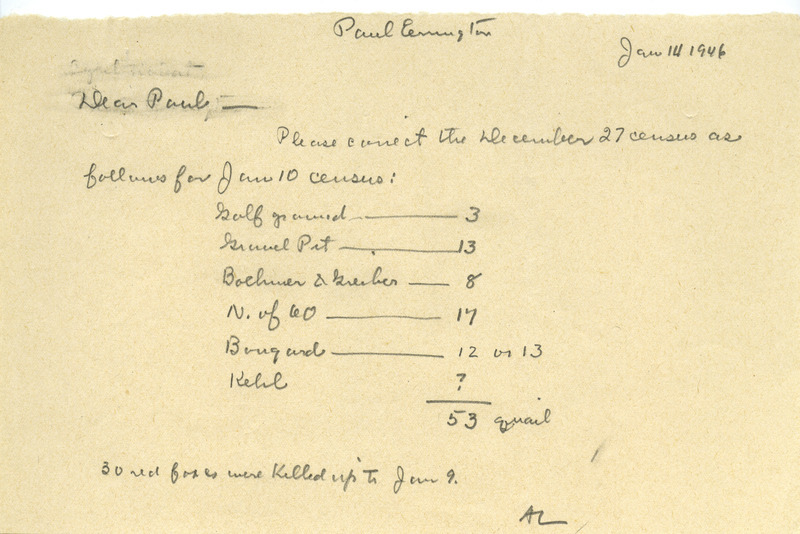 Paul Errington
Jan 14 1946
Dear Paul, —
Please correct the December 27 census as
follows for Jan 10 census:
Golf ground — 3
Gravel Pit — 13
Boehmer & Greiber — 8
N. of 60 — 17
Bongard — 12 or 13
Kehl ?
53 quail
30 red foxes were killed up to Jan 9.
AL